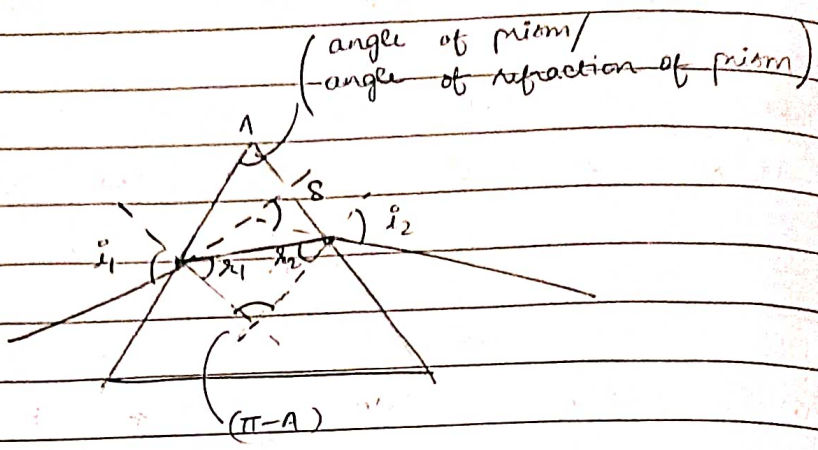 (angle of prism/
angle of refraction of prism)
A
δ
i₁
i₂
r₁
r₂
(π-A)